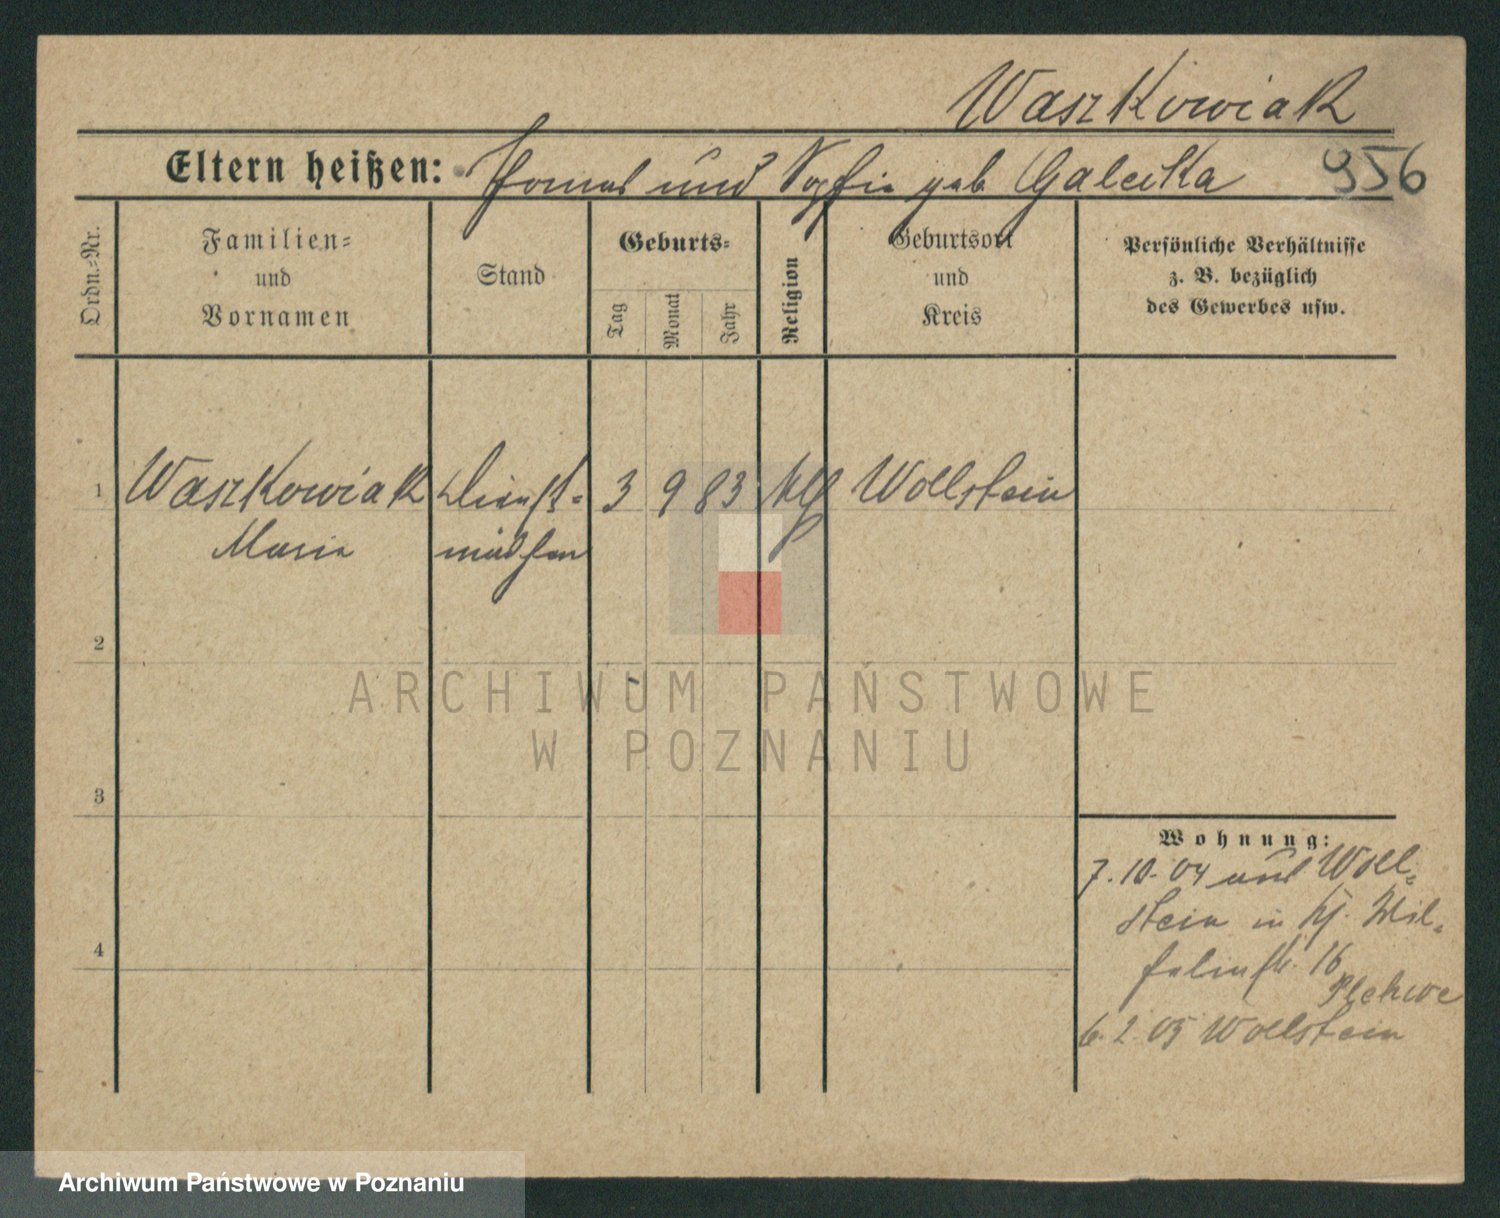 Waszkowiak
Eltern heißen: Thomas und Sophie geb Galecka 956
Ordn.-Nr.
Familien-
und
Vornamen
Stand
Geburts-
Tag
Monat
Jahr
Religion
Geburtsort
und
Kreis
Persönliche Verhältnisse
z. B. bezüglich
des Gewerbes usw.
1 Waszkowiak Dienst- 3 9 83 Wollstein
Maria mädchen
2
3
4
Wohnung:
7.10.04 aus Woll-
stein in
16
Plehwe
6.2.05 Wollstein
ARCHIWUM PAŃSTWOWE
W POZNANIU
Archiwum Państwowe w Poznaniu